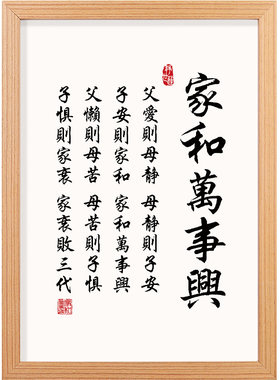 家和萬事興
父愛則母靜 母靜則子安
子安則家和 家和萬事興
父懶則母苦 母苦則子惧
子惧則家衰 家衰敗三代